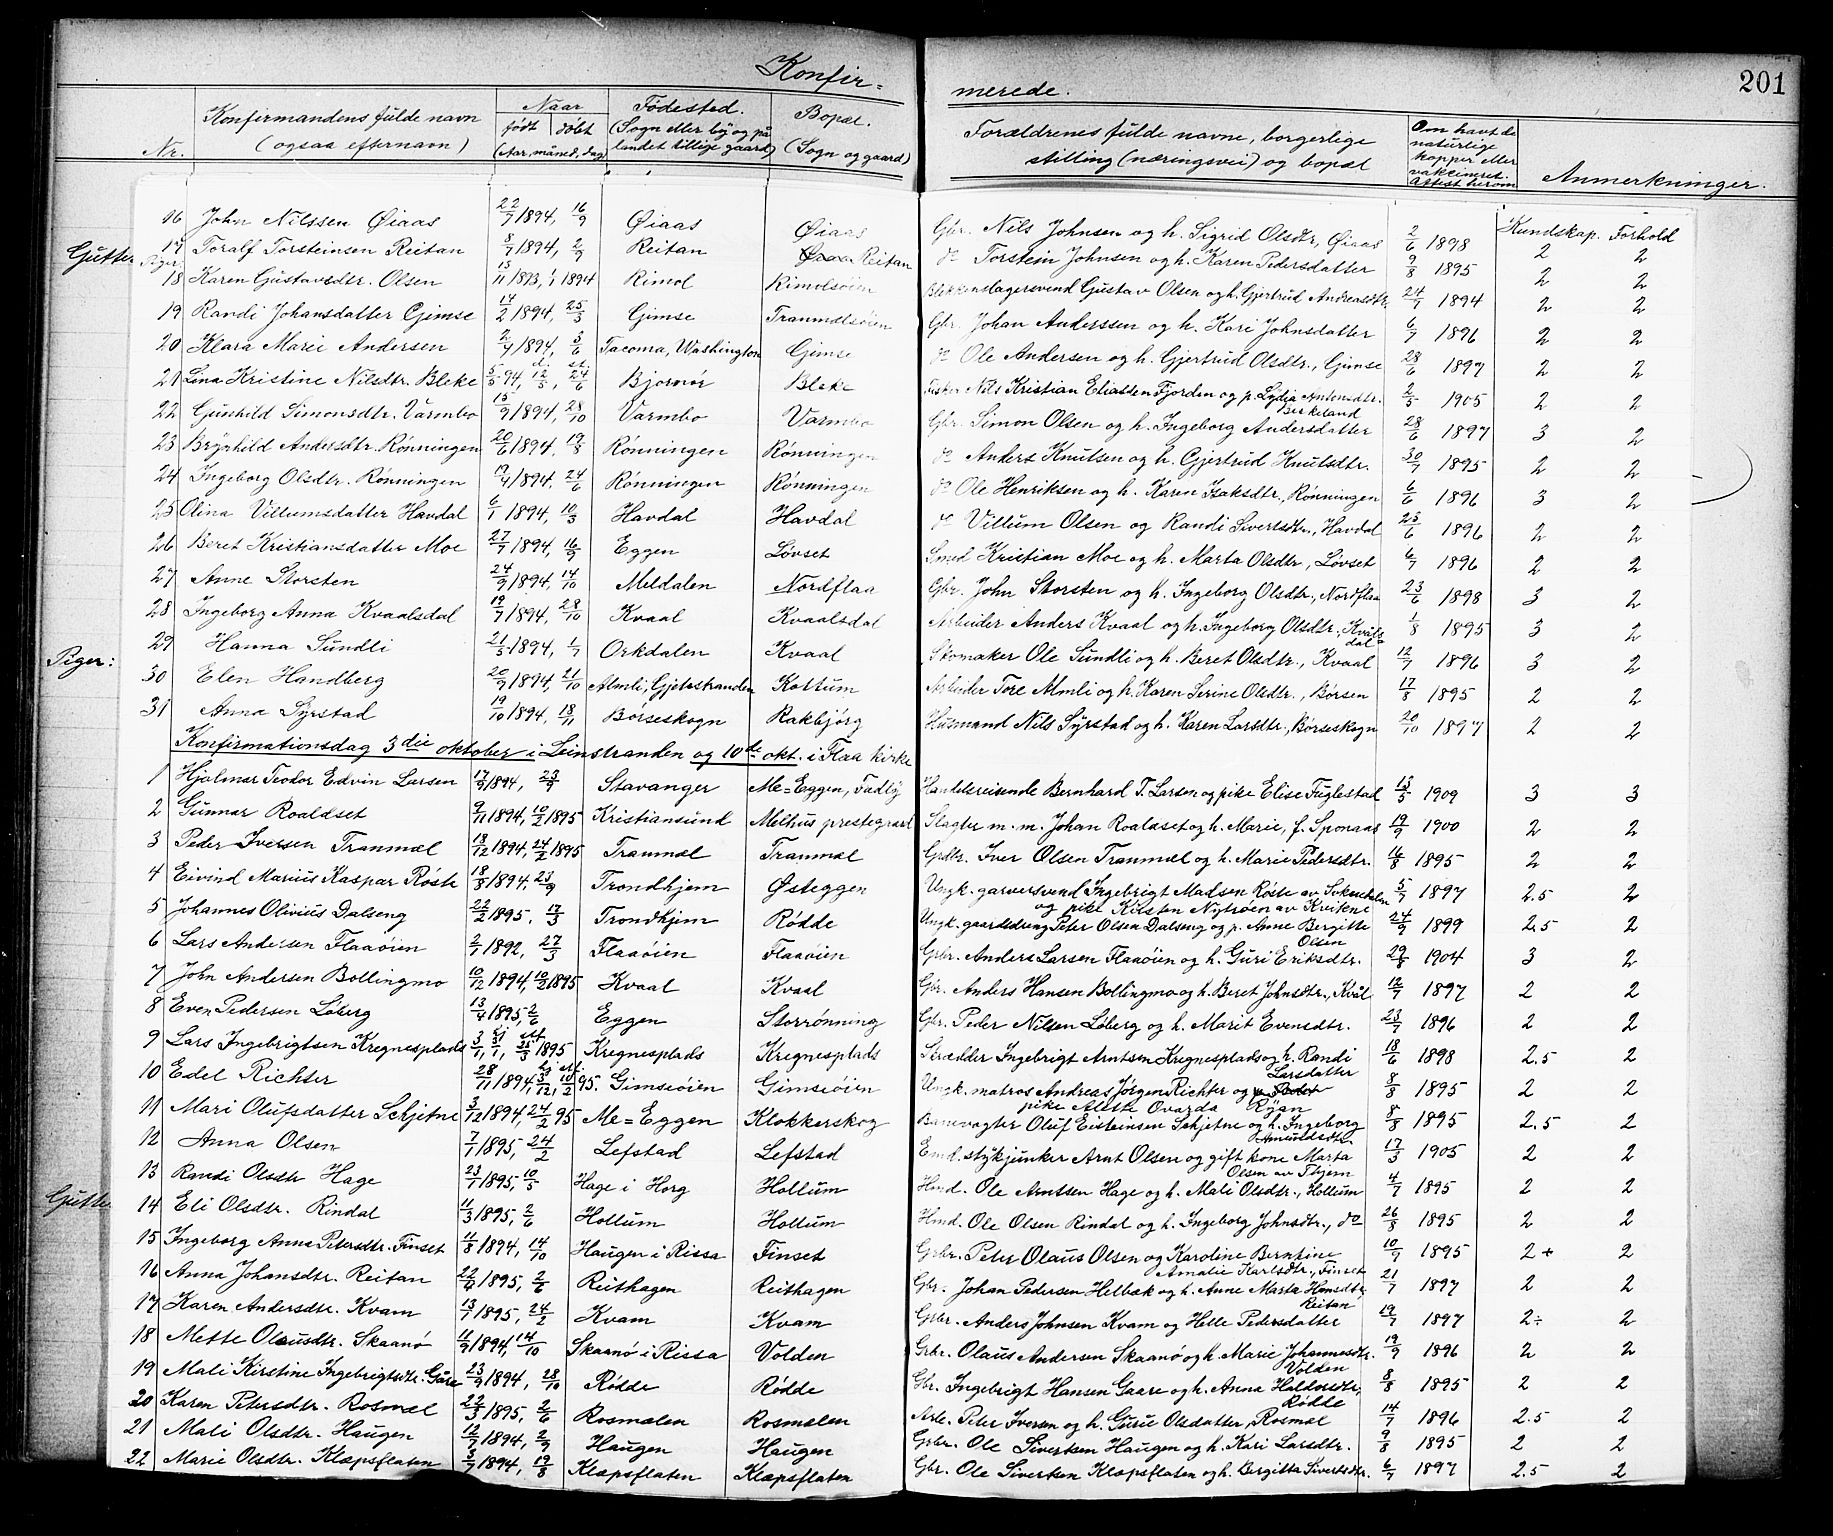 Konfirmerede. 201
Nr. Konfirmandens fulde navn (ogsaa efternavn) Naar født døbt (Aar, måned, dag) Fødested. (Sogn eller by og på landet tillige gaard) Bopæl. (Sogn og gaard) Forældrenes fulde navne, borgerlige stilling (næringsvei) og bopæl Om havt de naturlige kopper eller vaksineret. Attest herom Anmerkninger.
Kundskap. Forhold
Gutter
16 John Nilssen Øiaas 22/7 1894, 16/9 Øiaas Øiaas Gbr. Nils Johnsen og h. Sigrid Olsdtr, Øiaas 2/6 1898 2 2
17 Toralf Torsteinsen Reitan 8/7 1894, 2/9 Reitan Reitan do Torstein Johnsen og h. Karen Pedersdatter 9/8 1895 2 2
Piger
18 Karen Gustavsdtr. Olsen 13/11 1893, 1/1 1894 Rimol Rimolsøien Blikkenslagersvend Gustav Olsen og h. Gjertrud Andreasdtr 24/7 1894 2 2
19 Randi Johansdatter Gimse 14/2 1894, 25/3 Gimse Tranmælsøien Gbr. Johan Anderssen og h. Kari Johnsdatter 6/7 1896 2 2
20 Klara Marie Andersen 2/4 1894, 3/6 Tacoma, Washington Gimse do Ole Andersen og h. Gjertrud Olsdtr., Gimse 28/6 1897 2 2
21 Lina Kristine Nilsdtr. Bleke 5/5 94, 12/5, 24/6 Bjørnør Bleke Fisker Nils Kristian Eliassen Fjorden og p. Lydia Antonsdtr. Berkeland 2/5 1905 2 2
22 Gunhild Simonsdtr. Varmbo 15/9 1894, 28/10 Varmbo Varmbo Gbr. Simon Olsen og h. Ingeborg Andersdatter 28/6 1897 3 2
23 Brynhild Andersdtr. Rønningen 20/6 1894, 19/8 Rønningen Rønningen do Anders Knutsen og h. Gjertrud Knutsdtr. 30/7 1895 2 2
24 Ingeborg Olsdtr. Rønningen 17/4 1894, 24/6 Rønningen Rønningen do Ole Henriksen og h. Karen Izaksdtr., Rønningen 6/6 1896 3 2
25 Olina Villumsdatter Havdal 6/1 1894, 10/3 Havdal Havdal do Villum Olsen og Randi Sivertsdtr., Havdal 23/6 1896 2 2
26 Beret Kristiansdatter Moe 27/7 1894, 16/9 Eggen Løvset Smed Kristian Moe og h. Marta Olsdtr., Løvset 6/7 1896 2 2
27 Anne Storsten 24/9 1894, 14/10 Meldalen Nordflaa Gbr. John Storsten og h. Ingeborg Olsdtr., Nordflaa 23/6 1898 3 2
28 Ingeborg Anna Kvaalsdal 19/7 1894, 28/10 Kvaal Kvaalsdal Arbeider Anders Kvaal og h. Ingeborg Olsdtr., Kvålsdal 1/8 1895 3 2
Piger:
29 Hanna Sundli 21/5 1894, 1/7 Orkdalen Kvaal Skomaker Ole Sundli og h. Beret Olsdtr., Kvaal 12/7 1896 3 2
30 Elen Handberg 20/9 1894, 21/10 Almli, Gjetostranden Kottum Arbeider Tore Almli og h. Karen Serine Olsdtr., Børsen 17/8 1895 2 2
31 Anna Syrstad 19/10 1894, 18/11 Børseskogn Rakbjørg Husmand Nils Syrstad og h. Karen Larsdtr., Børseskogn 20/10 1897 2 2
Konfirmationsdag 3die oktober i Leinstranden og 10de okt. i Flaa kirke
1 Hjalmar Teodor Edvin Larsen 17/9 1894, 23/9 Stavanger Me=Eggen, Fadlø Handelsreisende Bernhard T. Larsen og pike Elise Fuglestad 13/5 1909 3 3
2 Gunnar Roaldset 9/11 1894, 10/2 1895 Kristiansund Melhus prestegaard Slagter m. m. Johan Roaldset og h. Marie, f. Sponaas 19/9 1900 2 2
3 Peder Iversen Tranmæl 18/12 1894, 24/2 1895 Tranmæl Tranmæl Grdbr. Iver Olsen Tranmæl og h. Marie Pedersdtr. 16/8 1895 2 2
4 Eivind Marius Kaspar Røste 18/8 1894, 23/9 Trondhjem Østeggen Ungk. garversvend Ingebrigt Madsen Røste av Soknedalen og pike Kirsten Nytrøen av Kvikne 5/7 1897 2.5 2
5 Johannes Olivius Dalseng 22/2 1895, 17/3 Trondhjem Rødde Ungk. gaardsdreng Peter Olsen Dalseng og p. Anne Bergitte Olsen 24/9 1899 2.5 2
6 Lars Andersen Flaaøien 2/1 1892, 27/3 Flaaøien Flaaøien Grbr. Anders Larsen Flaaøien og h. Guri Eriksdtr. 29/8 1904 3 2
7 John Andersen Bollingmo 10/12 1894, 10/2 1895 Kvaal Kvaal Gbr. Anders Hansen Bollingmo og h. Beret Johnsdtr., Kvål 12/7 1897 2 2
8 Even Pedersen Løberg 13/4 1895, 2/6 Eggen Storrønning Gbr. Peder Nilsen Løberg og h. Marit Evensdtr. 23/7 1896 2 2
9 Lars Ingebrigtsen Kregnesplads 3/1, 31/1, 25/3 1895 Kregnesplads Kregnesplads Skrædder Ingebrigt Arntsen Kregnesplads og h. Randi Larsdatter 18/6 1898 2.5 2
10 Edel Richter 28/11 1894, 3/12, 10/2 95. Gimseøien Gimseøien Ungk. matros Andreas Jørgen Richter og pike Alette Ovarda Ryan 8/8 1895 2 2
11 Mari Olufsdatter Schjetne 3/12 1894, 24/2 95 Me=Eggen Klokkerskog Banevogter Oluf Eisteinsen Schjetne og h. Ingeborg Amundsdtr. 8/8 1895 2.5 2
12 Anna Olsen 7/1 1895, 24/2 Lefstad Lefstad Emd. stykjunker Arnt Olsen og gift kone Marta Olsen av Thjem 17/3 1905 2 2
13 Randi Olsdtr Hage 23/7 1895, 10/5 Hage i Horg Hollum Hmd. Ole Arntsen Hage og h. Mali Olsdtr., Hollum 4/7 1895 2 2
Gutter
14 Eli Olsdtr. Rindal 11/3 1895, 2/6 Hollum Hollum Hmd. Ole Olsen Rindal og h. Ingeborg Johnsdtr., do 26/8 1895 2 2
15 Ingeborg Anna Petersdtr. Finset 11/8 1894, 14/10 Haugen i Rissa Finset Grbr. Peter Olaus Olsen og Karoline Berntine Amalie Karlsdtr., Finset 10/9 1895 2+ 2
16 Anna Johansdtr. Reitan 22/4 1895, 2/6 Reithagen Reithagen Gbr. Johan Pedersen Helbæk og h. Anne Marta Hansdtr Reitan 21/7 1897 2 2
17 Karen Andersdtr. Kvam 13/1 1895, 24/2 Kvam Kvam Grbr. Anders Johnsen Kvam og Helle Pedersdatter 19/7 1897 2÷ 2
18 Mette Olausdtr. Skaanø 11/9 1894, 14/10 Skaanø i Rissa Volden Grbr. Olaus Andersen Skaanø og h. Marie Johannesdtr. Volden 19/9 1896 2 2
19 Mali Kirstine Ingebrigtsdtr. Gåre 23/9 1894, 28/10 Rødde Rødde Gbr. Ingebrigt Hansen Gaare og h. Anna Haldorsdtr, Rødde 8/8 1895 2 2
20 Karen Petersdtr. Rosmæl 22/3 1895, 2/6 Rosmælen Rosmælen Arb. Peter Iversen og h. Gurie Olsdatter, Rosmæl 14/7 1896 2.5 2
21 Mali Olsdtr. Haugen 12/7 1894, 2/9 Haugen Haugen Grbr. Ole Sivertsen Haugen og h. Kari Larsdtr. 9/8 1895 2 2
22 Marie Olsdtr. Klæpsflaten 3/7 1894, 19/8 Klæpsflaten Klæpsflaten Gbr. Ole Sivertsen Klæpsflaten og h. Bergitta Sivertsdtr. 6/7 1897 2.5 2